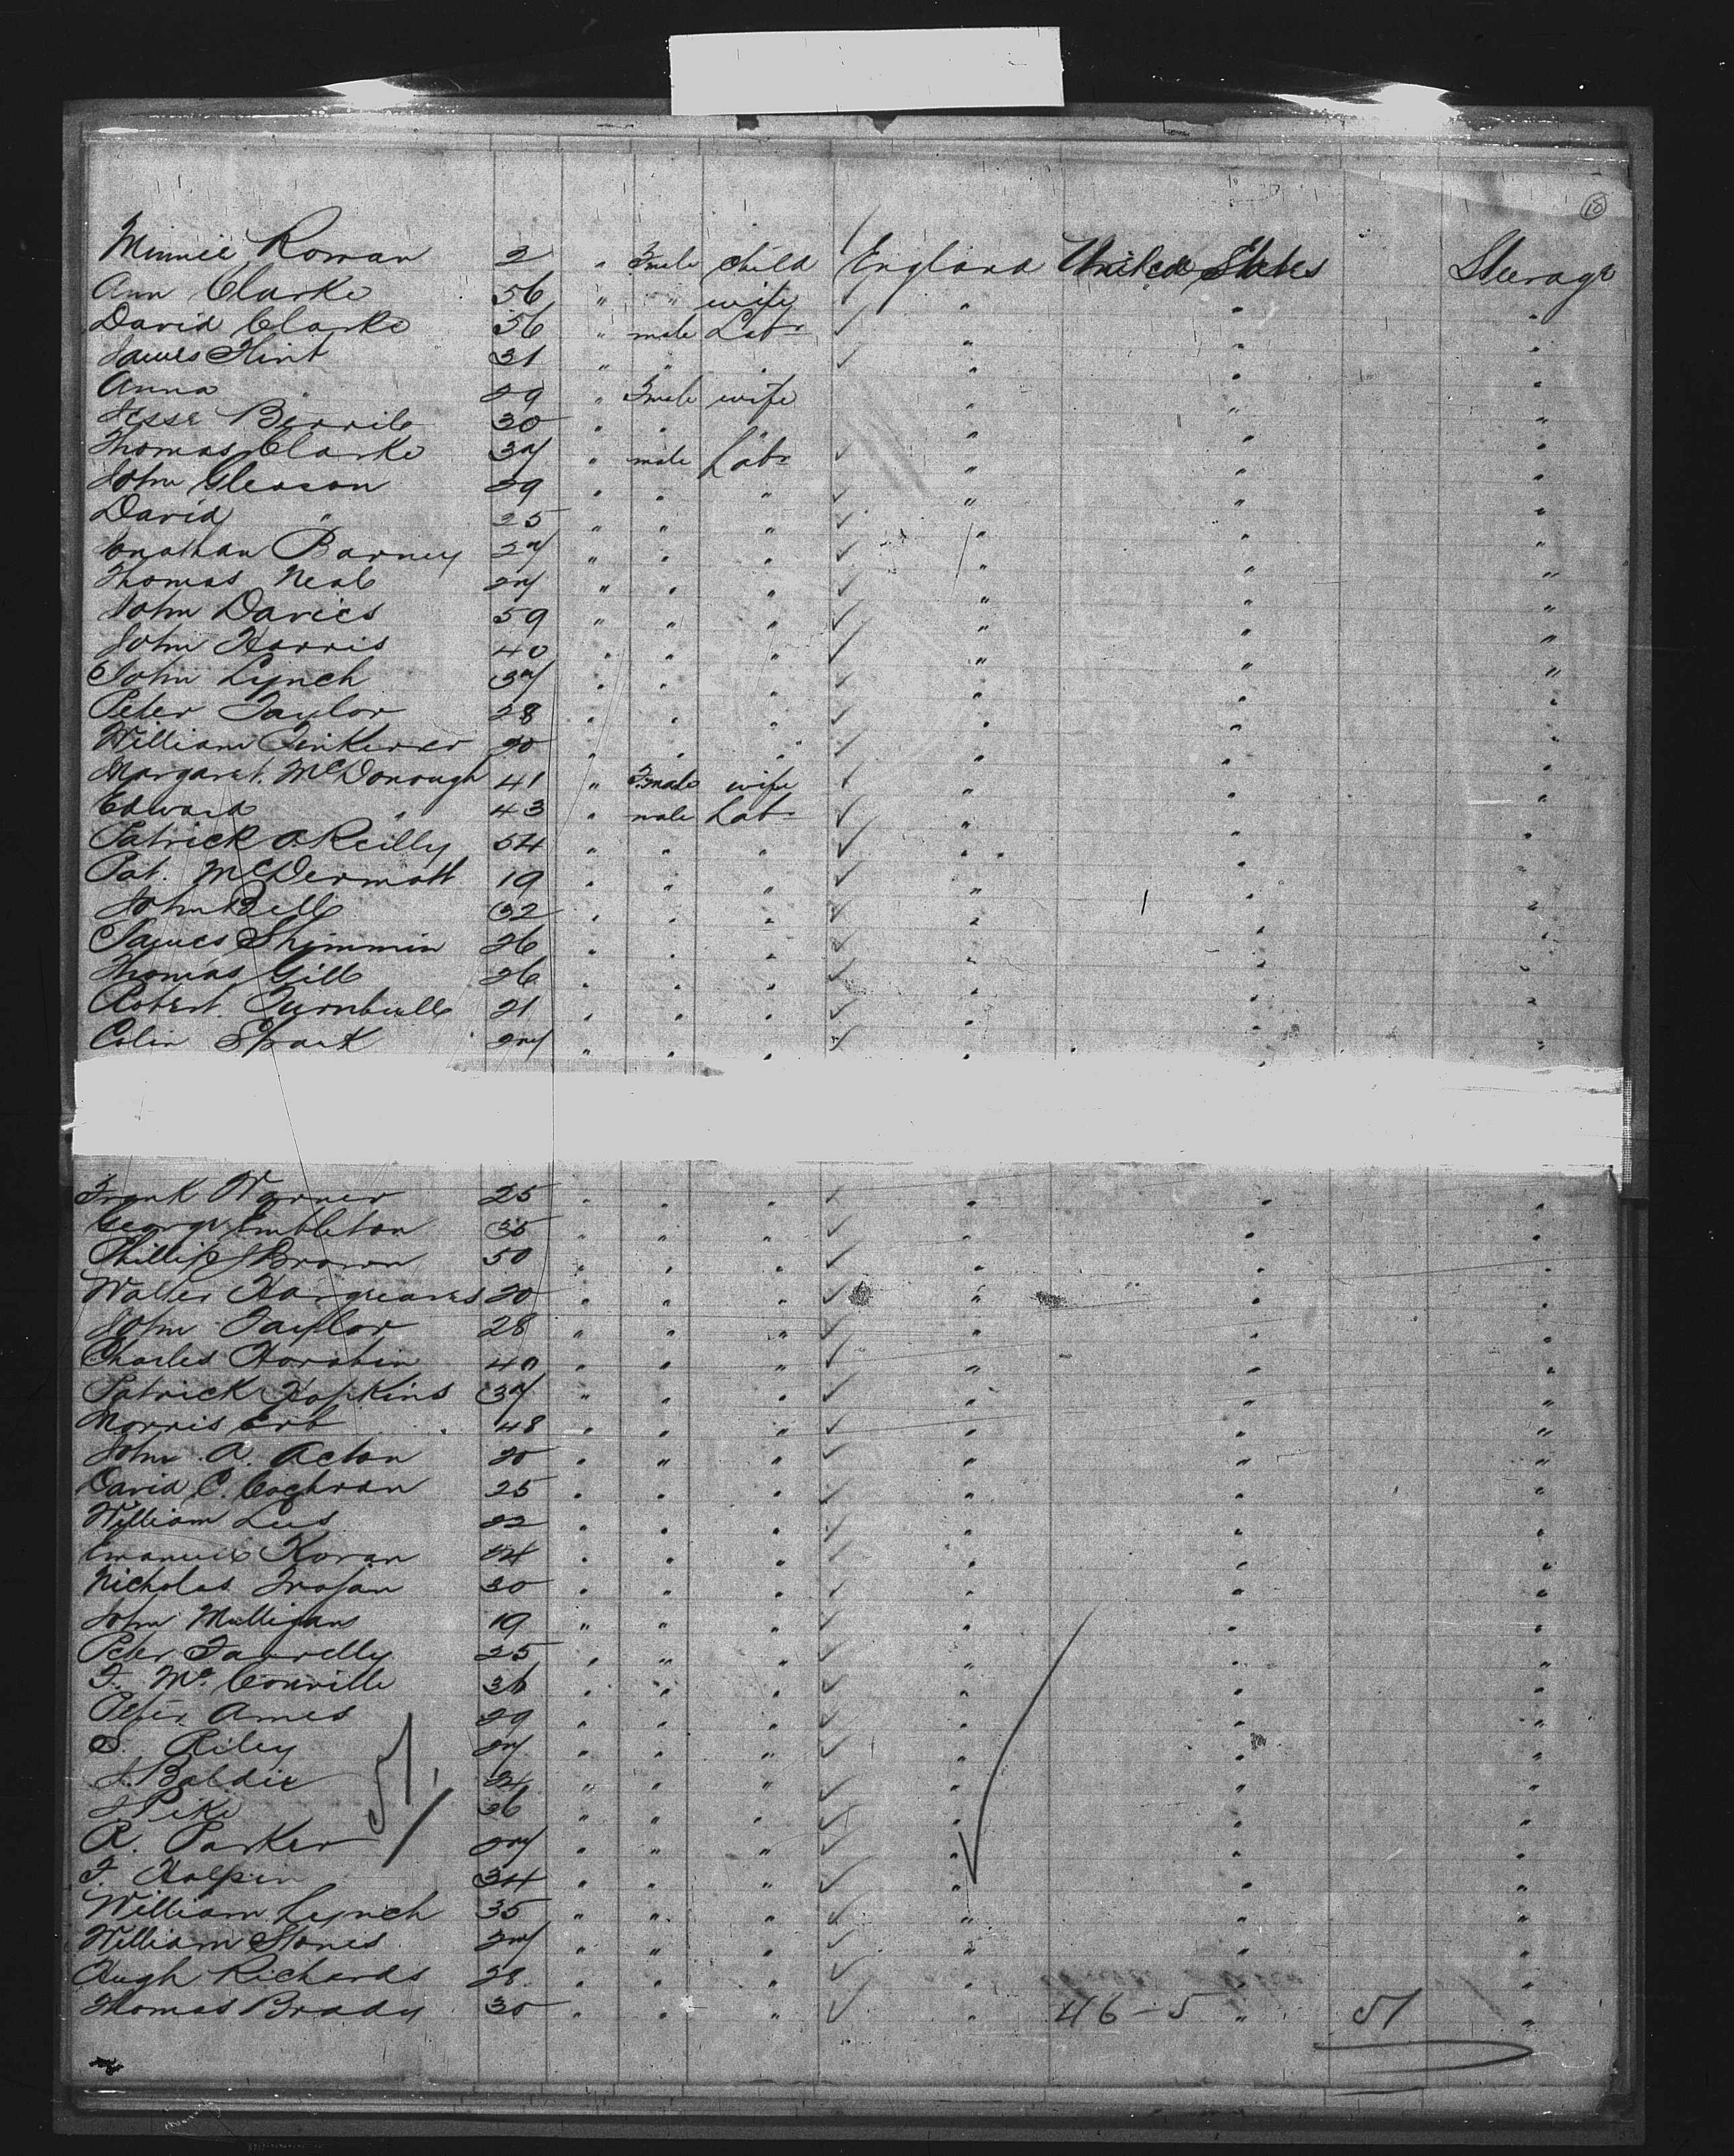 18
Minnie Rowan 2 " Fmale child England United States Steerage
Ann Clarke 56 " " wife " " "
David Clarke 56 " male Labr " " "
James Flint 31 " " " " " "
Anna " 29 " Fmale wife " " "
Jesse Berrill 30 " " " " " "
Thomas Clarke 37 " male Labr " " "
John Gleason 29 " " " " " "
David " 25 " " " " " "
Jonathan Barney 27 " " " " " "
Thomas Neal 27 " " " " " "
John Davies 59 " " " " " "
John Harris 40 " " " " " "
John Lynch 37 " " " " " "
Peter Taylor 28 " " " " " "
William 20 " " " " " "
Margaret McDonough 41 " Female wife " " "
Edward " 43 " male Labr " " "
Patrick O'Reilly 54 " " " " " "
Pat. McDermott 19 " " " " " "
John Bell 32 " " " " " "
James Shimmin 26 " " " " " "
Thomas Gill 26 " " " " " "
Robert Turnbull 21 " " " " " "
Colin Shark 27 " " " " " "
Frank Warner 25 " " " " " "
George Embleton 35 " " " " " "
Phillip J Brown 50 " " " " " "
Walter Hargreaves 20 " " " " " "
John Taylor 28 " " " " " "
Charles Horobin 40 " " " " " "
Patrick Hopkins 37 " " " " " "
Morris Erb 48 " " " " " "
John A. Acton 20 " " " " " "
David C. Cochran 25 " " " " " "
William Lees 22 " " " " " "
Emanuel Koran 24 " " " " " "
Nicholas Trojan 30 " " " " " "
John Mulligan 19 " " " " " "
Peter Farrelly 25 " " " " " "
F. Mc Conville 36 " " " " " "
Peter Ames 29 " " " " " "
S. Riley 27 " " " " " "
J. Baldie 24 " " " " " "
J Pike 26 " " " " " "
R. Parker 27 " " " " " "
T. Halpin 34 " " " " " "
William Lynch 35 " " " " " "
William Jones 27 " " " " " "
Hugh Richards 28 " " " " " "
Thomas Brady 30 " " " " 46-5 " 51 "
51